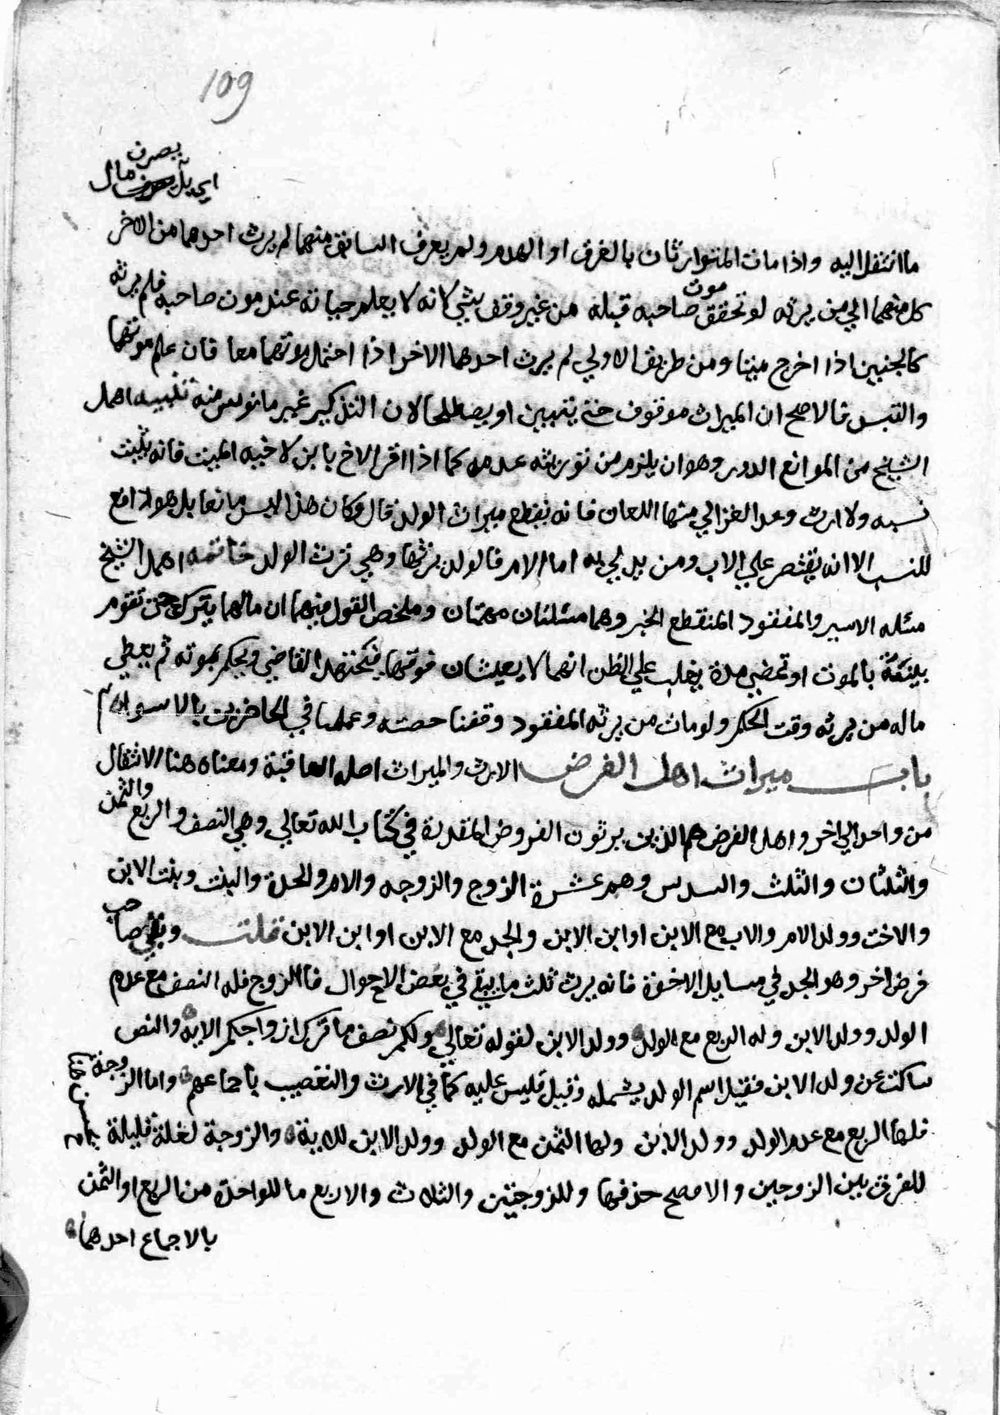 109
يصرف
اي بدل مال
ما انتقل اليه واذا مات المتوارثان بالغرق او الهدم ولم يعرف السابق منهما لم يرث احدهما من الاخر
كل منهما الي من يرثه لو تحقق موت صاحبه قبله من غير وقف بشي لانه لا يعلم حياته عند موت صاحبه فلم يرثه
كالجنين اذا اخرج ميتا ومن طريق الاولي لم يرث احدهما الاخر اذا احتمل موتهما معا فان علم موتهما
والتبس فالاصح ان الميراث موقوف حتي يتبين او يصطلحا لان التذكير غير مانوس منه تنبيه اهمل
الشيخ من الموانع الدور وهو ان يلزم من توريثه عدمه كما اذا اقر الاخ بابن لاخيه الميت فانه يثبت
نسبه ولا ارث وعد الغزالي منها اللعان فانه يقطع ميراث الولد قال وكان هذا ليس مانعا بل هو دافع
للنسب الا انه يقتصر علي الاب ومن يدلي به اما الام فالولد يرثها وهي ترث الولد خاتمه اهمل الشيخ
مسئله الاسير والمفقود المنقطع الخبر وهما مسئلتان مهمتان وملخص القول فيهما ان مالهما يترك حتي تقوم
بينة بالموت او تمضي مدة يغلب علي الظن انهما لا يعيشان فوقها فيجتهد القاضي ويحكم بموته ثم يعطي
ماله من يرثه وقت الحكم ولو مات من يرثه المفقود وقفنا حصته وعملنا في الحاضرين بالاسوا
باب ميراث اهل الفرض الارث والميراث اصله العاقبة ومعناه هنا الانتقال
من واحد الي اخر واهل الفرض هم الذين يرثون الفروض المقدرة في كتاب الله تعالي وهي النصف والربع والثمن
والثلثان والثلث والسدس وهم عشرة الزوج والزوجه والام والجدة والبنت وبنت الابن
والاخت وولد الام والاب مع الابن او ابن الابن والجد مع الابن او ابن الابن قلت وبقي صاحب
فرض اخر وهو الجد في مسايل الاخوة فانه يرث ثلث ما يبقي في بعض الاحوال فالزوج فله النصف مع عدم
الولد وولد الابن وله الربع مع الولد وولد الابن لقوله تعالي ولكم نصف ما ترك ازواجكم الاية والنص
ساكت عن ولد الابن فقيل اسم الولد يشمله وقيل قليس عليه كما في الارث والتعصيب باجماعهم واما الزوجة
فلها الربع مع عدم الولد وولد الابن ولها الثمن مع الولد وولد الابن للاية والزوجة لغلة قليلة
للفرق بين الزوجين والافصح حذفها وللزوجتين والثلاث والاربع ما للواحدة من الربع او الثمن
بالاجماع احدهما